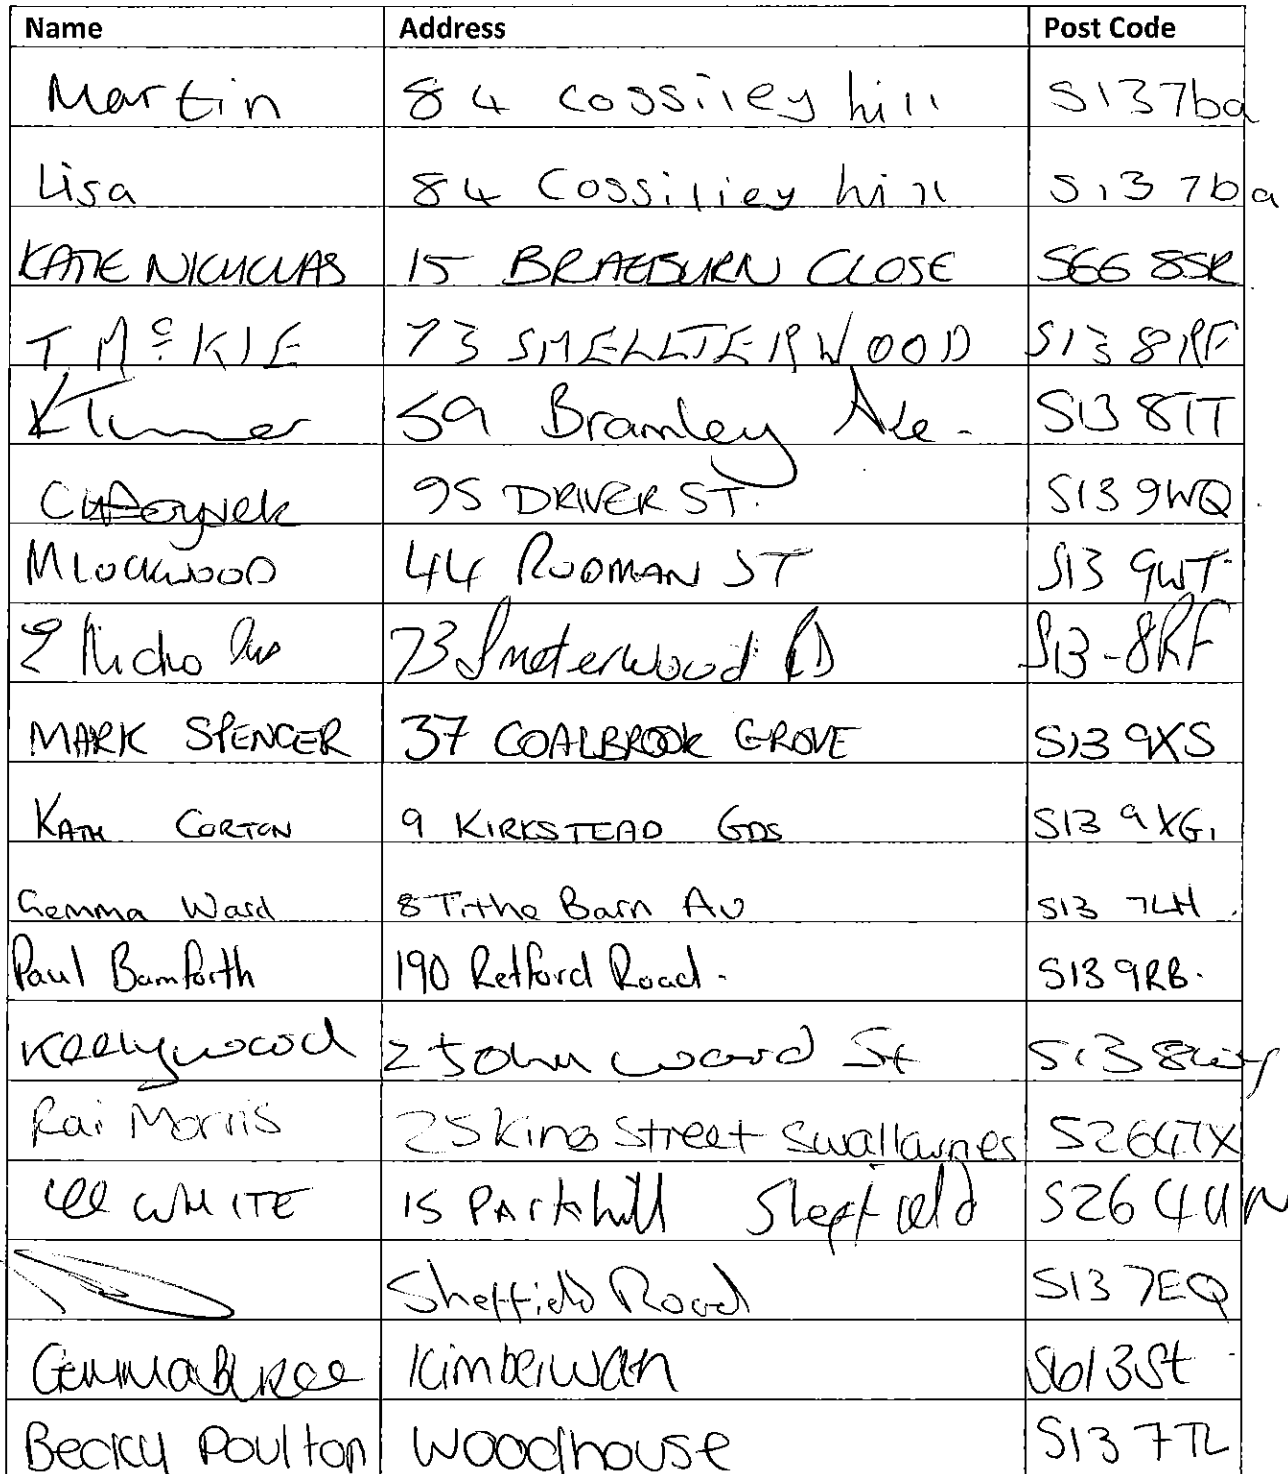 Name Address Post Code
Martin 84 cossiley hill S137ba
Lisa 84 Cossiliey hill S13 7ba
KATIE NICHOLAS 15 BRAEBURN CLOSE S66 8SR
T McKIE 73 SMELLTERWOOD S13 8RF
59 Bramley Ave. S13 8TT
95 DRIVER ST. S13 9WQ
M LOCKWOOD 44 RODMAN ST S13 9WT
Nicholas 73 Smelterwood RD S13-8RF
MARK SPENCER 37 COALBROOK GROVE S13 9XS
KATH CORTON 9 KIRKSTEAD GDS S13 9XG
Gemma Ward 8 Tithe Barn Av S13 7LH
Paul Bamforth 190 Retford Road. S13 9RB.
Keelywood 2 John Ward St S13 8
Rai Morris 25 King Street Swallownes S264TX
Lee WHITE 15 Parkhill Sheffield S26 4UN
Sheffield Road S13 7EQ
Gemma Kimberwah S613St
Becky Poulton Woodhouse S13 7TL